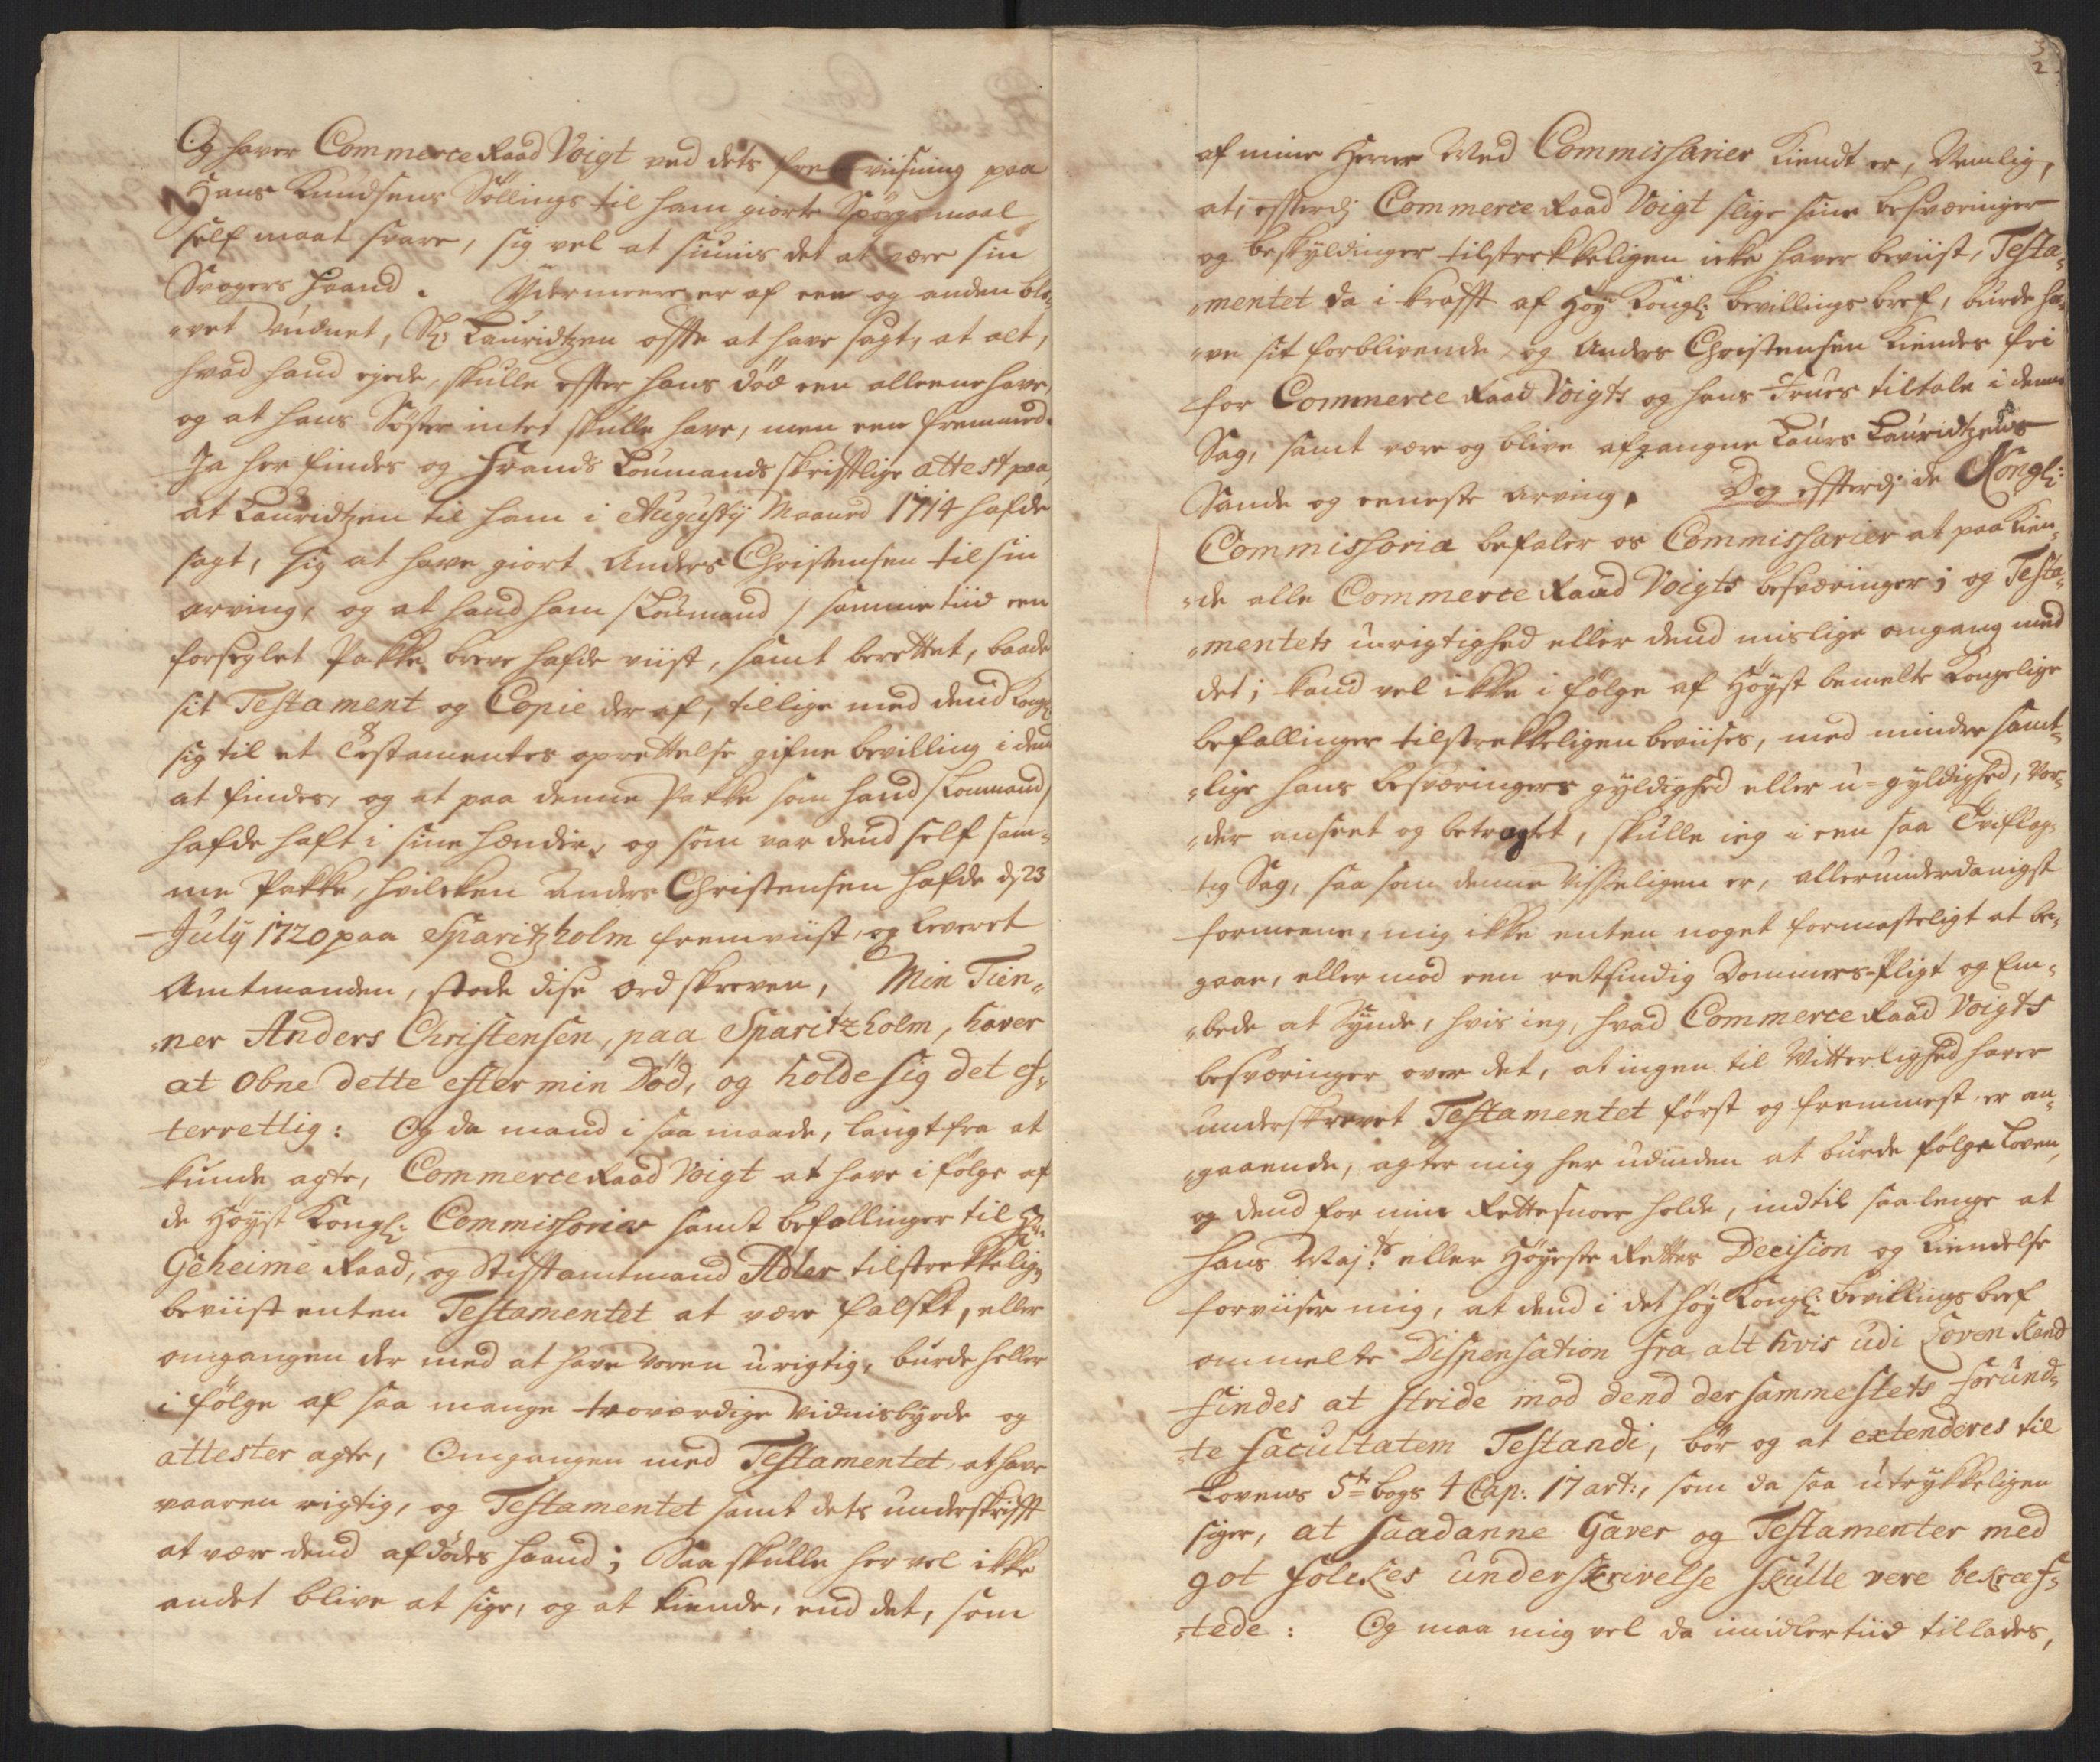 Og haver Commerce Raad Voigt ved dets fremviisning paa
Hans Knudsens Söllings til ham giorte Spörgsmaal
self maat svare, sig vel at siunis det at være sin
Svogers Haand. Ydermeere er af een og anden ble-
-vet vudnet, Sl: Lauridtzen offte at have sagt, at alt,
hvad hand ejede, skulle effter hans död een alleene have,
og at hans Söster intet skulle have, men een fremmed.
Ja her findes og Frands Loumands skrifftlige attest paa,
at Lauridtzen til ham i Augusty Maaned 1714 hafde
sagt, sig at have giort Anders Christensen til sin
arving, og at hand ham /Loumand/ samme tiid een
forseglet Pakke breve hafde viist, samt berettet, baade
sit Testament og Copie der af, tillige med dend Kongl:
sig til et Testamentes oprettelse gifne bevilling i den
at findes, og at paa denne Pakke som hand /Loumand/
hafde haft i sine hænder, og som var dend self sam-
me Pakke, hvilcken Anders Christensen hafde d. 23
July 1720 paa Sparitzholm fremviist, og leveret
Amtmanden, stode disse ord skreven, Min Tien-
-ner Anders Christensen, paa Sparitzholm, haver
at obne dette efter min Död, og holde sig det ef-
terrettig: Og da mand i saa maade, langt fra at
kunde agte, Commerce Raad Voigt at have i fölge af
de Höyst Kongl: Commissorier samt befallinger til Hr:
Geheime Raad, og Stifftamtmand Adler tilstrekkelig
beviist enten Testamentet at være falskt, eller
omgangen der med at have voren urigtig, burde heller
i fölge af saa mange troværdige Vidnisbyrde og
attester agte, Omgangen med Testamentet at have
vaaren rigtig, og Testamentet samt dets underskrifft
at være dend afdödes Haand; Saa skulle her vel ikke
andet blive at sige, og at kiende, end det, som
3
2
af mine Herrer Med Commissarier kiendt er, Nemlig,
at, effterdj Commerce Raad Voigt slige sine besværinger
og beskyldinger tilstrekkeligen icke haver beviist, Testa-
-mentet da i krafft af Höy Kongl: bevillings bref, burde ha-
-ve sit forblivende, og Anders Christensen kiendes fri
for Commerce Raad Voigts og hans Frues tiltale i denne
Sag, samt være og blive afgangne Laurs Lauridtzens
Sande og eeneste arving. Dog effterdj de Kongl:
Commissoria befaler os Commissarier at paakien-
-de alle Commerce Raad Voigts besværinger; og Testa-
-mentets urigtighed eller dend mislige omgang med
det; kand vel ikke i fölge af Höyst bemelte Kongelige
befallinger tilstrekkeligen beviises, med mindre samt-
-lige hans besværingers gyldighed eller u-gyldighed, vor-
-der anseet og betragtet, skulle ieg i een saa
tig Sag, saa som denne visseligen er, allerunderdanigst
formeene, mig ikke enten noget formasteligt at be-
gaae, eller mod een retsindig Dommers-Pligt og Em-
-bede at Synde, hvis ieg, hvad Commerce Raad Voigts
besværinger over det, at ingen til Vitterlighed haver
underskrevet Testamentet först og fremmest er an-
-gaaende, agter mig her udinden at burde fölge Loven,
og dend for min Rettesnoer holde, indtil saa lenge at
Hans Maj:ts eller Höyeste Rettes Decision og kiendelse
forviiser mig, at dend i det höy Kongl: bevillings bref
ommelte Dispensation fra alt hvis udi Loven kand
findes at stride mod dend der sammestets forund-
-te facultatem Testandi, bör og at extenderes til
Lovens 5te bogs 4 Cap: 17 art:, som da saa utrykkeligen
siger, at saadanne Gaver og Testamenter med
got folckes underskrivelse skulle vere bekraf-
-tede: Og maa mig vel da imidlertiid tillades,